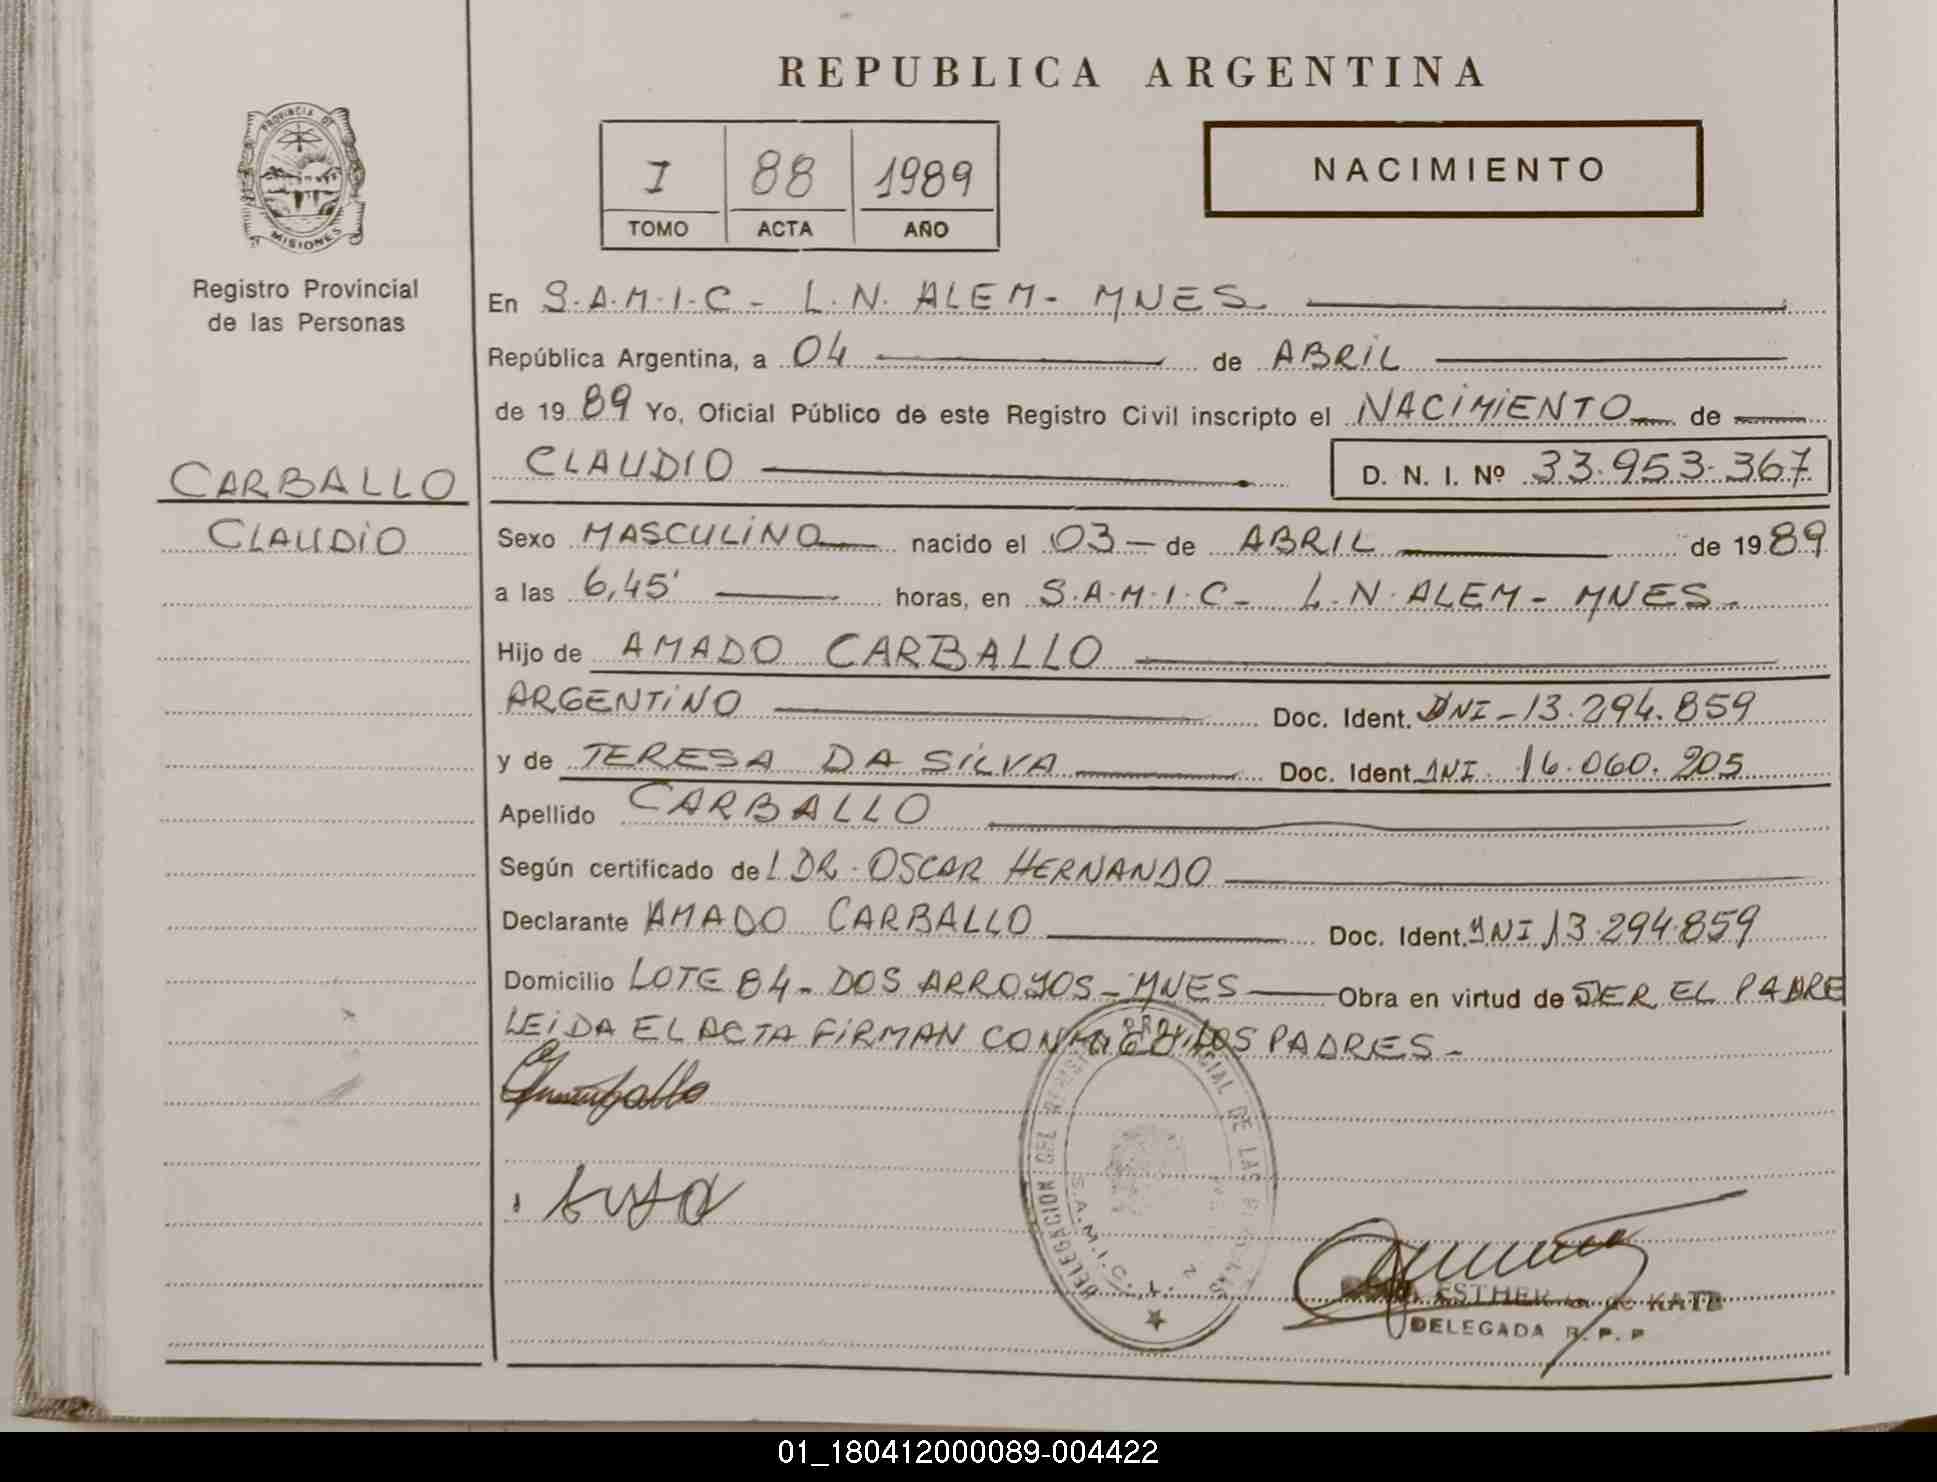 REPUBLICA ARGENTINA
PROVINCIA DE
MISIONES
Registro Provincial
de las Personas
I 88 1989
TOMO ACTA AÑO
NACIMIENTO
En S.A.M.I.C- L.N. ALEM- MNES-
República Argentina, a 04 de ABRIL
de 1989 Yo, Oficial Público de este Registro Civil inscripto el NACIMIENTO de
CLAUDIO D. N. I. Nº 33.953.367
CARBALLO
CLAUDIO
Sexo MASCULINO nacido el 03 - de ABRIL de 1989
a las 6,45' horas, en S.A.M.I.C- L.N. ALEM- MNES-
Hijo de AMADO CARBALLO
ARGENTINO Doc. Ident. DNI-13.294.859
y de TERESA DA SILVA Doc. Ident. DNI. 16.060.205
Apellido CARBALLO
Según certificado del DR. OSCAR HERNANDO
Declarante AMADO CARBALLO Doc. Ident. DNI 13.294.859
Domicilio LOTE 84- DOS ARROYOS-MNES- Obra en virtud de SER EL PADRE
LEIDA EL ACTA FIRMAN CONMIGO LOS PADRES-
DELEGACION DEL REGISTRO PROVINCIAL DE LAS
S.A.M.I.C. L. N.
ESTHER de KATZ
DELEGADA R.P.P
01_180412000089-004422